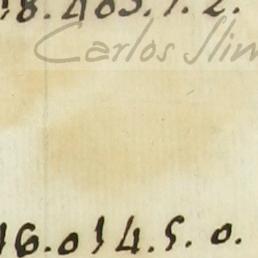 18.483.7.2.
Carlos Slim
16.014.5.0.